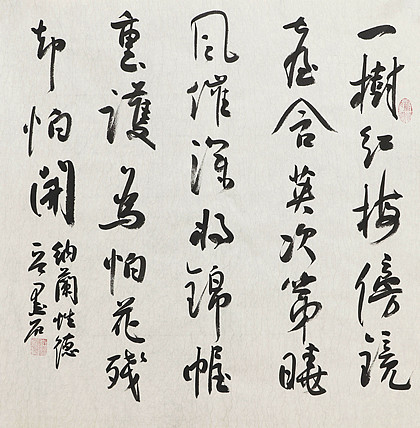 一樹红梅傍鏡
臺含英次第曉
風催深将錦幄
重護為怕花殘
却怕開
納蘭性德
墨石